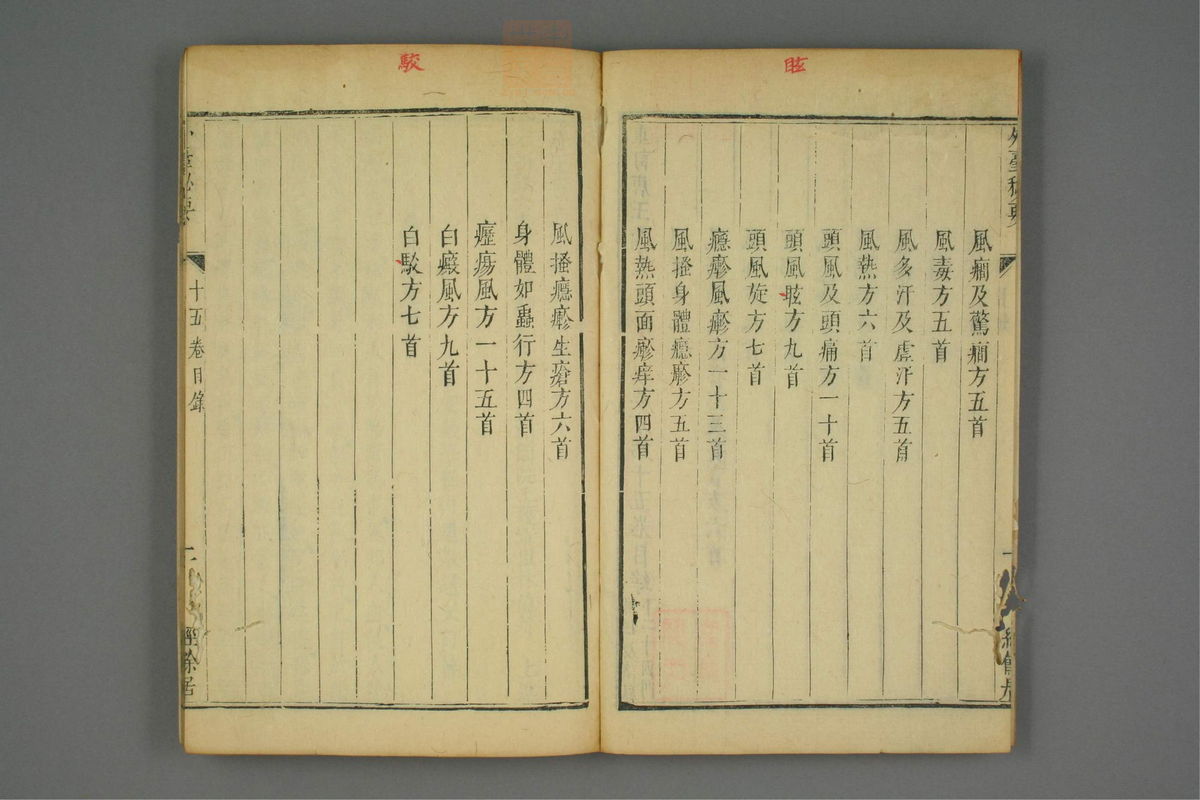 眩
外臺秘要
風癎及驚癎方五首
風毒方五首
風多汗及虛汗方五首
風熱方六首
頭風及頭痛方一十首
頭風眩方九首
頭風旋方七首
癮疹風疹方一十三首
風搔身體癮疹方五首
風熱頭面疹痒方四首
經餘居
駁
風搔癮疹生瘡方六首
身體如蟲行方四首
癧瘍風方一十五首
白癜風方九首
白駁方七首
臺秘要
十五卷目錄
二
經餘居